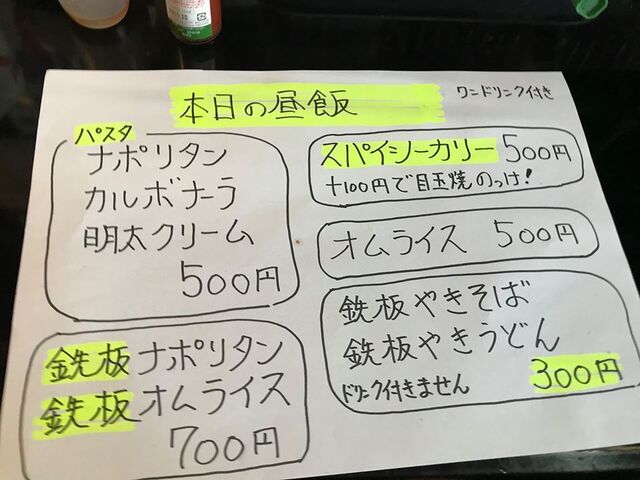 本日の昼飯
ワンドリンク付き
パスタ
ナポリタン
カルボナーラ
明太クリーム
500円
スパイシーカリー 500円
+100円で目玉焼のっけ!
オムライス 500円
鉄板ナポリタン
鉄板オムライス
700円
鉄板やきそば
鉄板やきうどん
ドリンク付きません 300円